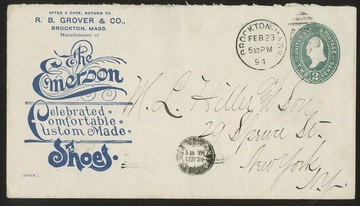 AFTER 5 DAYS, RETURN TO
R. B. GROVER & CO.,
BROCKTON, MASS.
Manufacturers of
The
Emerson
Celebrated
Comfortable
Custom Made
Shoes.
(OVER.)
BROCKTON, MASS.
FEB 23
5 30 PM
94
UNITED STATES POSTAGE
TWO 2 CENTS
M. L. Hiller & Son
29 Spruce St.
New York
N.Y.